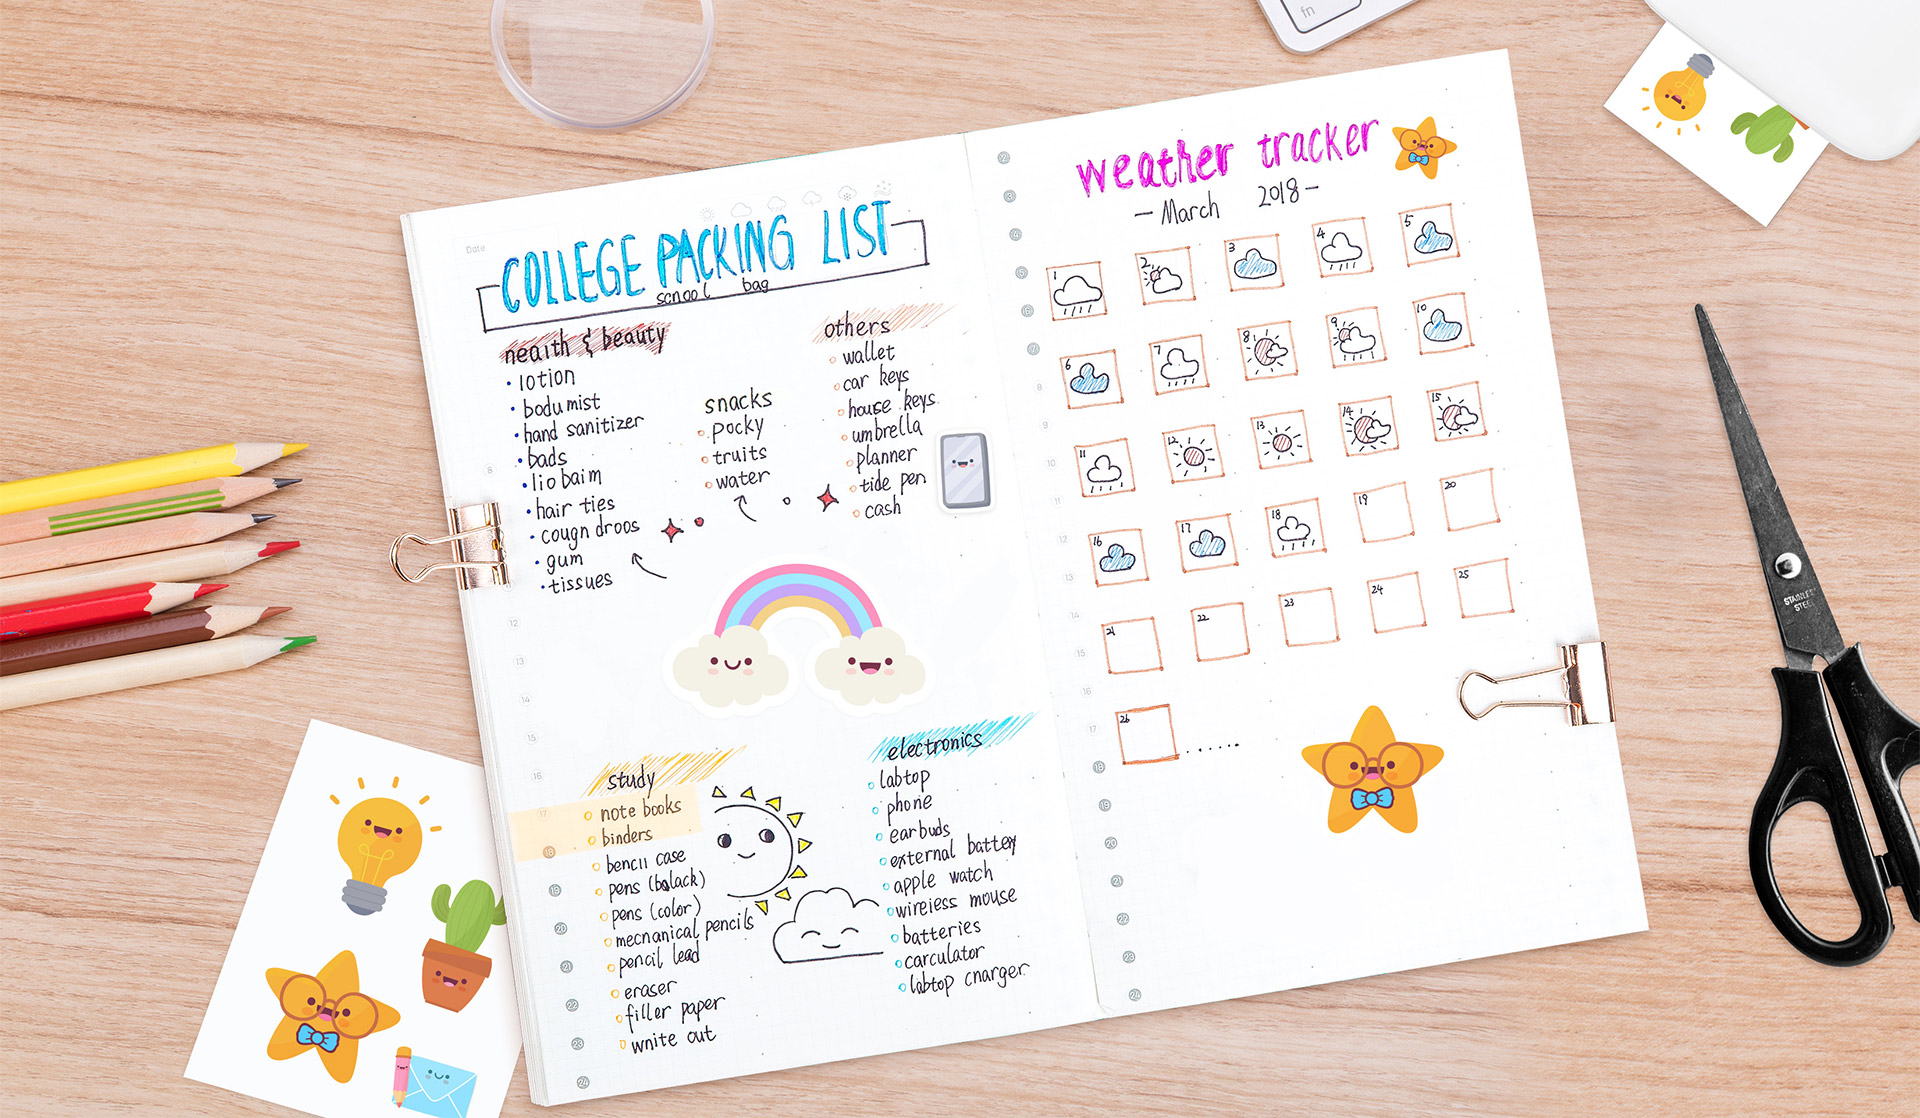 fn
Date
COLLEGE PACKING LIST
scnool bag
nealth & beauty
lotion
bodu mist
hand sanitizer
bads
lio baim
hair ties
cougn droos
gum
tissues
snacks
pocky
truits
water
others
wallet
car keys
house keys
umbrella
planner
tide pen
cash
study
note books
binders
bencil case
pens (bolack)
pens (color)
mecnanical pencils
pencil lead
eraser
filler paper
wnite out
electronics
labtop
phone
earbuds
external battey
apple watch
wireiess mouse
batteries
carculator
labtop cnarger
8
12
13
14
15
16
17
18
19
20
21
22
23
24
weather tracker
- March 2018 -
1 2 3 4 5
6 7 8 9 10
11 12 13 14 15
16 17 18 19 20
21 22 23 24 25
26 ......
2
3
4
5
6
7
8
9
10
11
12
13
14
15
16
17
18
19
20
21
22
23
24
STAINLESS
STEEL